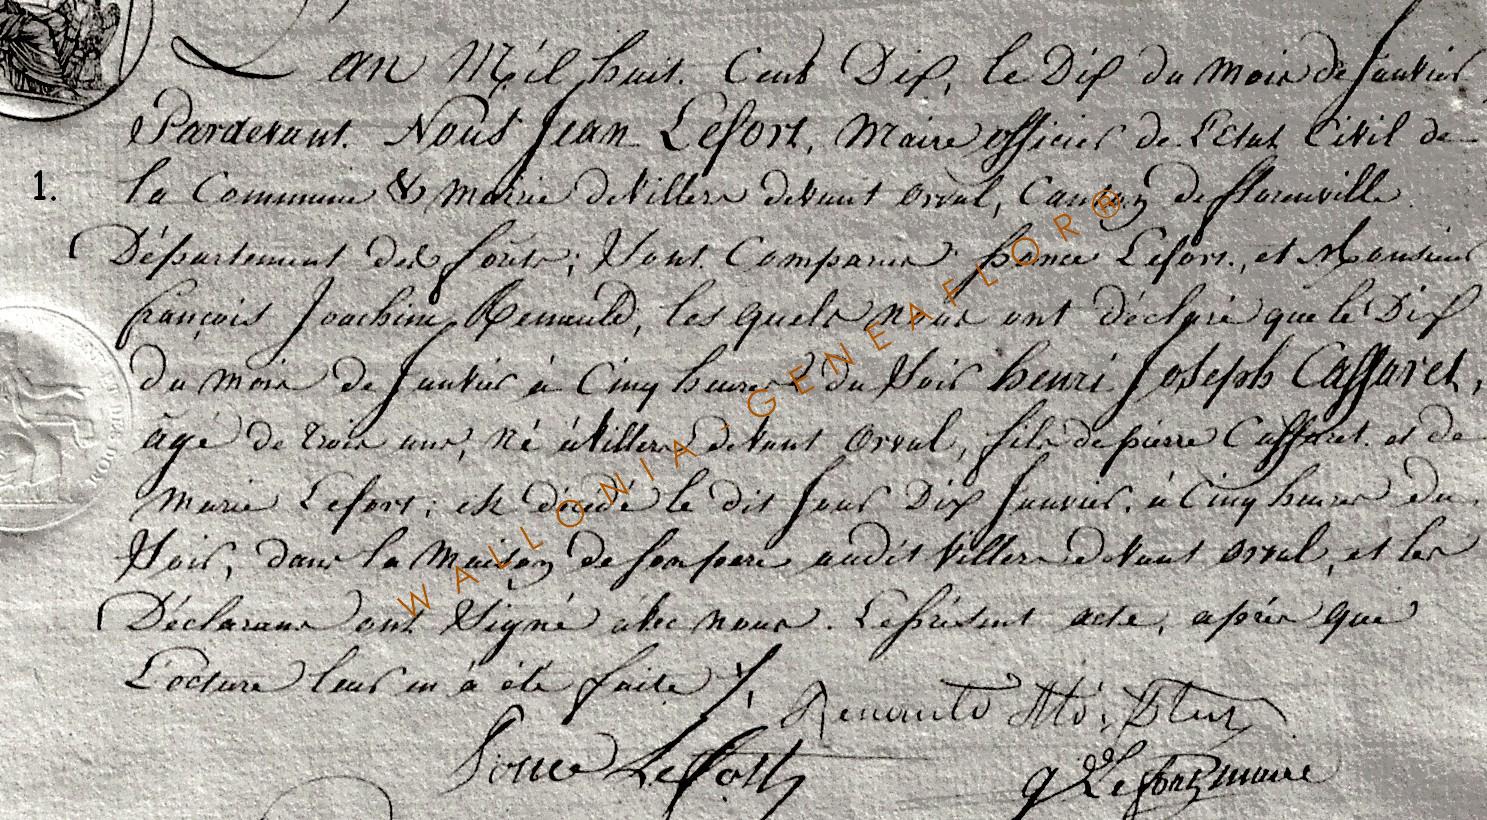 L'an Mil huit Cent Dix, le Dix du mois de Janvier
Pardevant Nous Jean Lefort, Maire officier de L'Etat Civil de
1. la Commune & mairie de Villers devant orval, Canton de florenville
Département des forêts; Sont Comparus Lefort, et Monsieur
françois Joachim Renauld, les quels nous ont déclaré que le Dix
du mois de Janvier à Cinq heures du Soir henri Joseph Caffaret,
agé de trois ans, né à Villers devant orval, fils de pierre Caffaret et de
Marie Lefort; est décédé le dit Jour Dix Janvier, à Cinq heures du
Soir, dans la Maison de son pere audit Villers devant orval, et les
Déclarans ont Signé avec nous. Le présent acte, après que
Lecture leur en à été faite
Renauld
Lefort
Lefort maire
WALLONIA - GENEAFLOR®